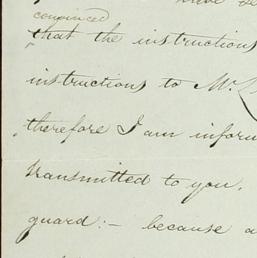 have
convinced
that the instructions
instructions to Mr.
therefore I am
transmitted to you,
guard:— because a